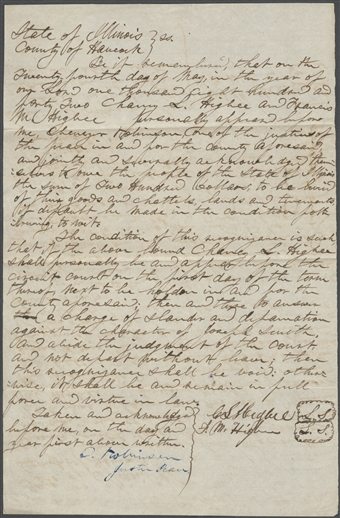 State of Illinois } ss.
County of Hancock }
Be it remembered, that on the
Twenty fourth day of May, in the year of
our Lord one thousand Eight hundred and
forty Two Chancy L. Higbee and Francis
M. Higbee personally appeard before
me, Ebenezer Robinson, one of the justices of
the peace in and for the County aforesaid,
and jointly and severally acknowledged them
selves to owe the people of the State of Illinois
the sum of Two Hundred Dollars, to be levied
of their goods and chattels, lands and tenements
if default be made in the condition foll
owing, to wit:
The condition of this recognizance is such
that if the above bound Chancy L. Higbee
shall personally be and appear before the
circuit court on the first day of the term
thereof next to be holden in and for the
County aforesaid; then and there to answer
a charge of slander and defamation
against the character of Joseph Smith,
and abide the judgment of the court
and not depart without leave; then
this recognizance shall be void: other
wise, it shall be and remain in full
force and virtue in law.
Taken and acknowledged
before me, on the day and
year first above written.
C. L. Higbee L. S.
F. M. Higbee L. S.
E. Robinson